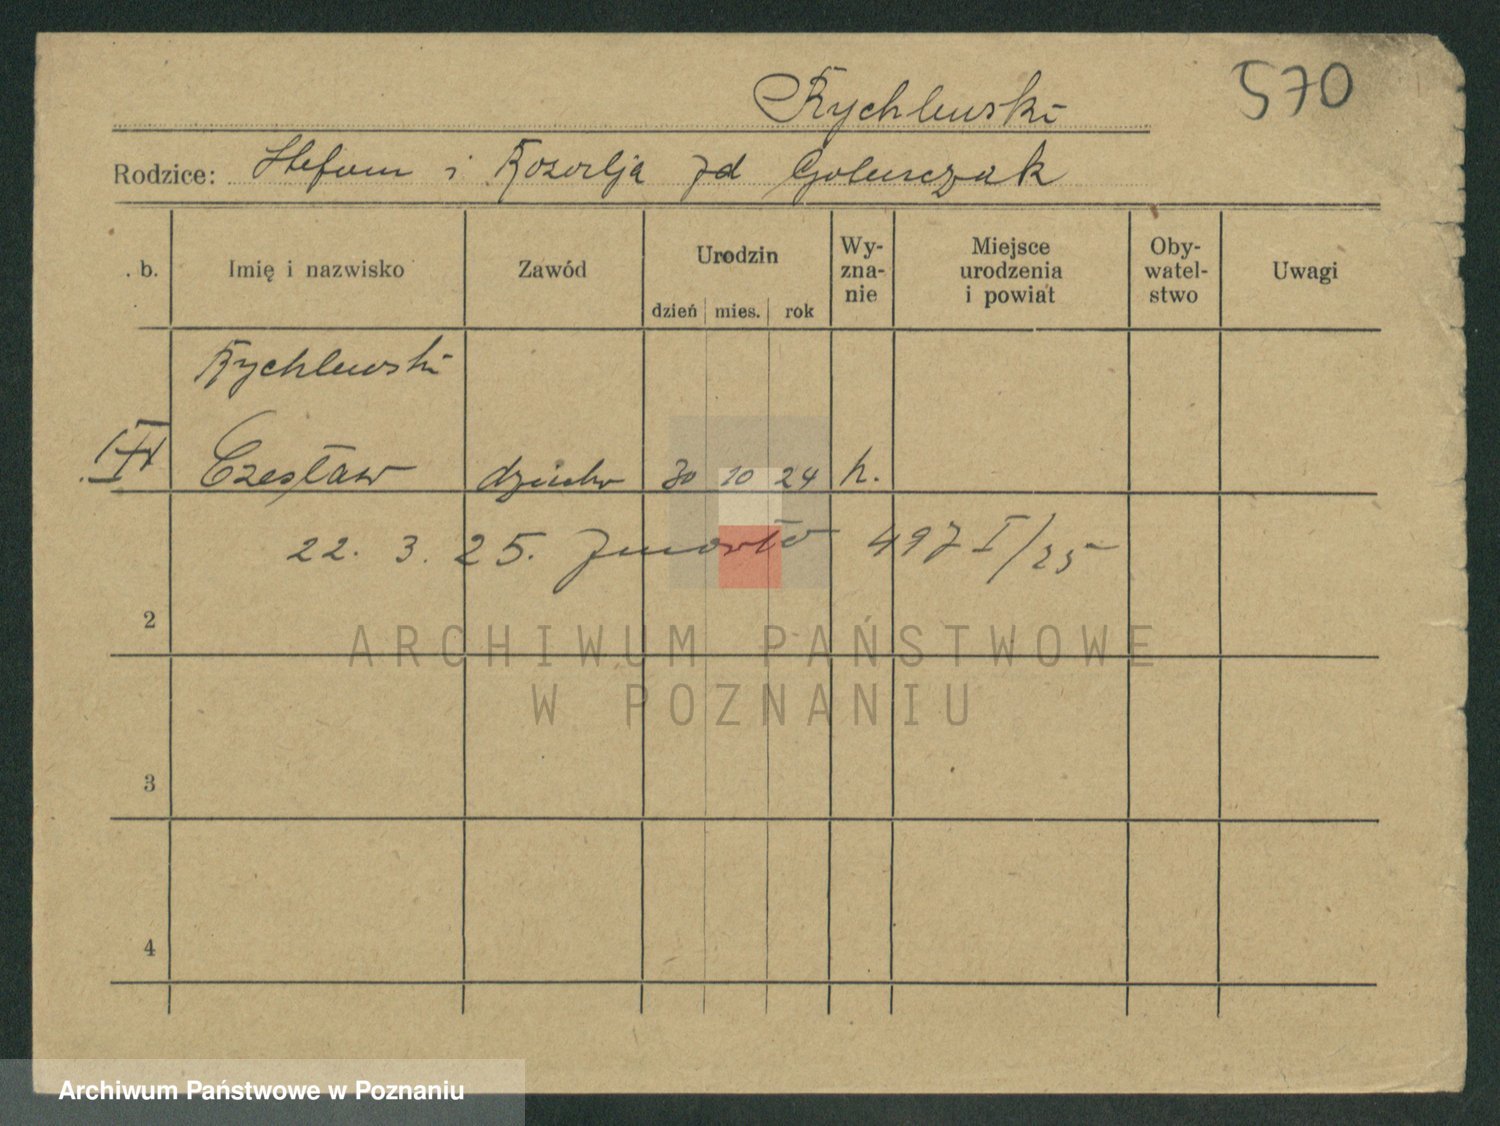 Rychlewski
570
Rodzice: Stefan i Rozalja zd Golurczak
. b. Imię i nazwisko Zawód Urodzin Wy- Miejsce Oby- Uwagi
zna- urodzenia watel-
nie i powiat stwo
dzień mies. rok
Rychlewski
Czesław dziecko 30 10 24 k.
22. 3. 25. Zmarło 497 I/25
2
ARCHIWUM PAŃSTWOWE
W POZNANIU
3
4
Archiwum Państwowe w Poznaniu